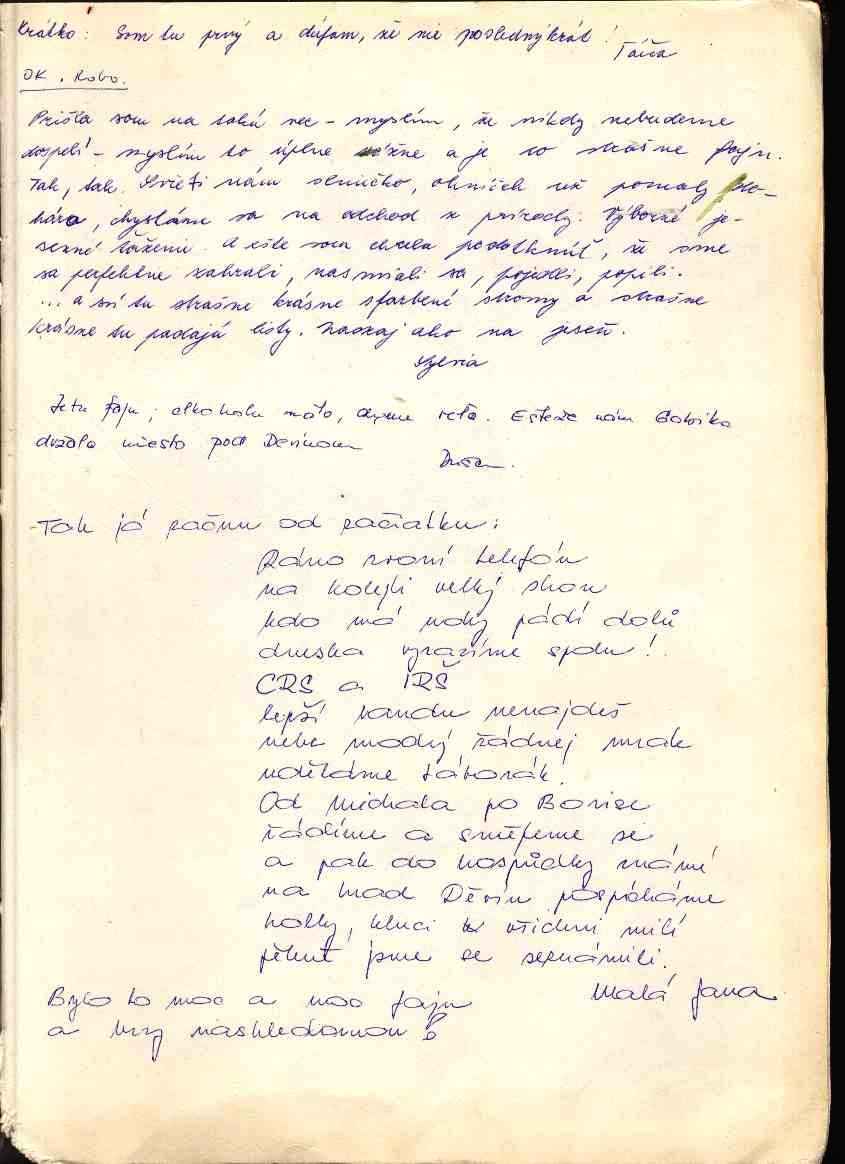 Krátko: Som tu prvý a dúfam, že nie poslednýkrát!
Táňa
OK. Robo.
Prišla som na takú vec - myslím, že nikdy nebudeme
dospelí - myslím to úplne vážne a je to strašne fajn.
Tak, tak. Svieti nám slniečko, ohníček už pomaly do-
hára, chystáme sa na odchod z prírody. Výborné je-
senné táženie. A ešte som chcela podotknúť, že sme
sa perfektne zahrali, nasmiali sa, pojedli, popili.
... a sú tu strašne krásne sfarbené stromy a strašne
krásne tu padajú listy. Naozaj ako na jeseň.
Sylvia
Je tu fajn; alkoholu málo, dyme veľa. Ešteže nám
držala miesto pod Devínom
Dušan.
- Tak já začnu od začátku:
Ráno zvoní telefón
na koleji velký shon
kdo má nohy pádí dolů
dneska vyrazíme spolu!
CRS a IRŠ
lepší bandu nenajdeš
nebe modrý žádnej mrak
uděláme táborák!
Od Michala po Borise
řádíme a smějeme se
a pak do hospůdky známé
na hrad Děvín pospícháme
holky, kluci všichni milí
pěkně jsme se seznámili.
Malá Jana
Bylo to moc a moc fajn
a brzy nashledanou!